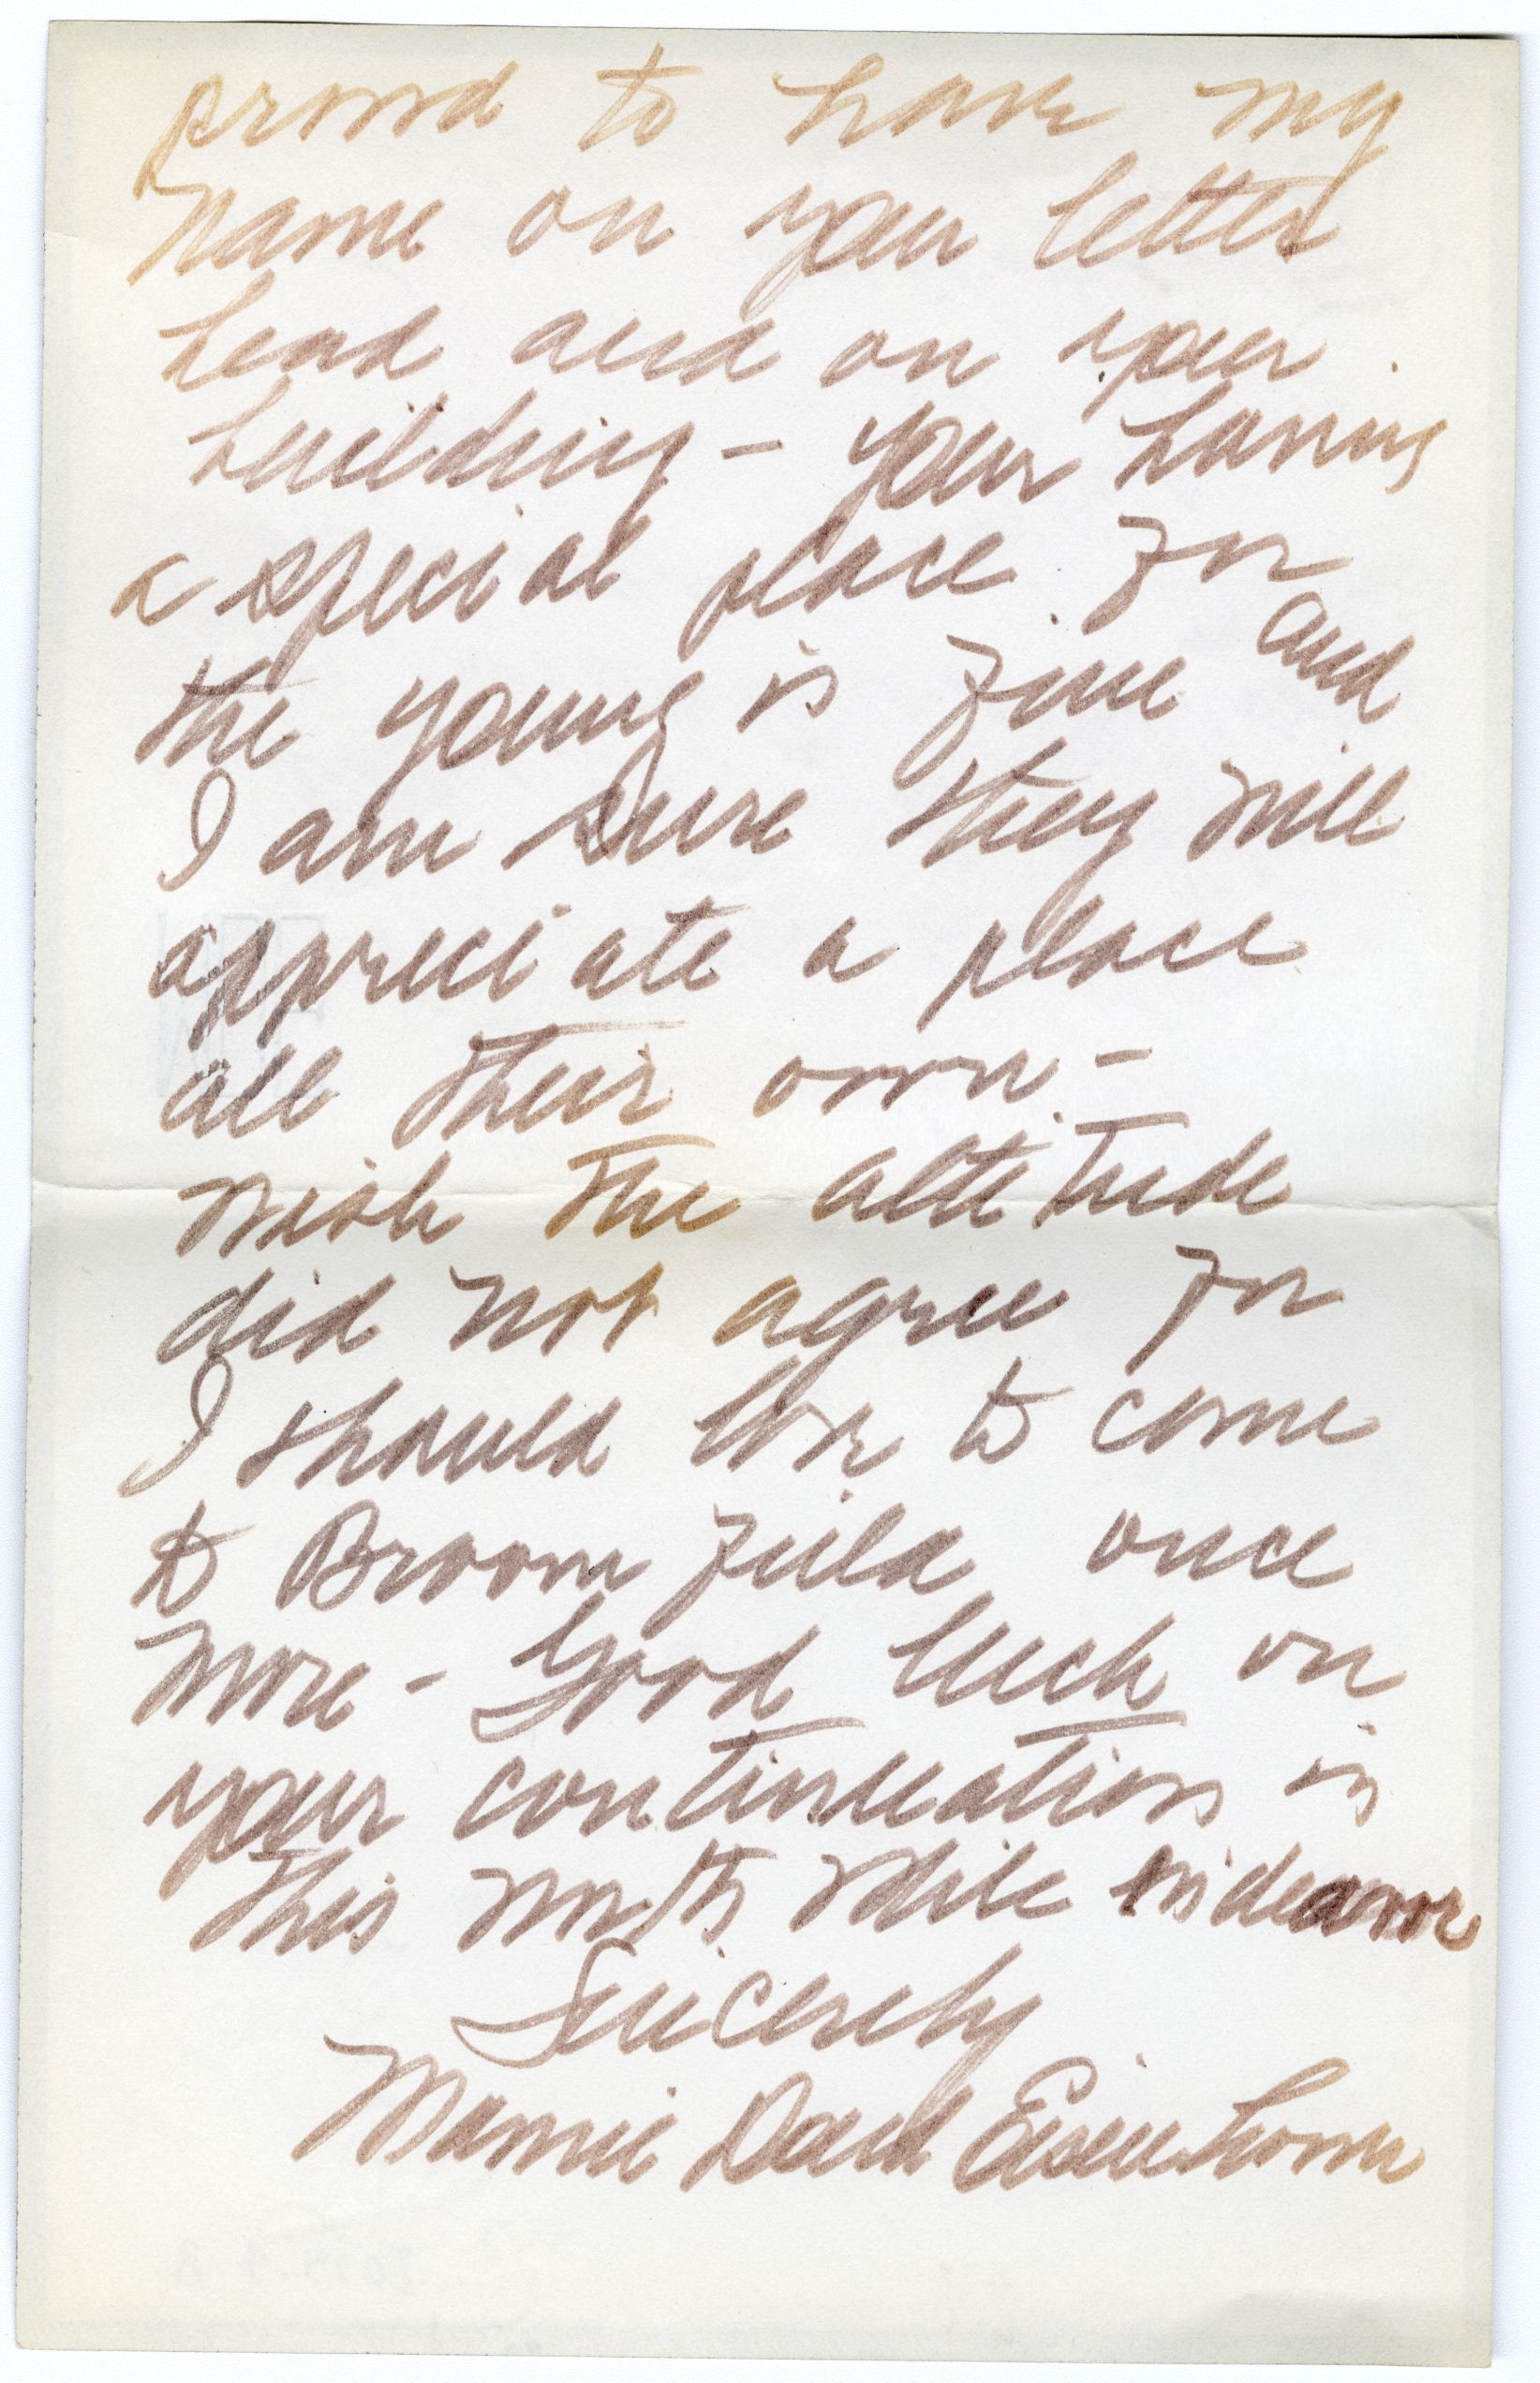 proud to have my
name on your letter
head and on your
building - your having
a special place for
the young is fine and
I am sure they will
appreciate a place
all their own -
wish the altitude
did not agree for
I should love to come
to Broom field once
more - Good luck on
your continuation in
this worth while endeavor
Sincerely
Mamie Doud Eisenhower